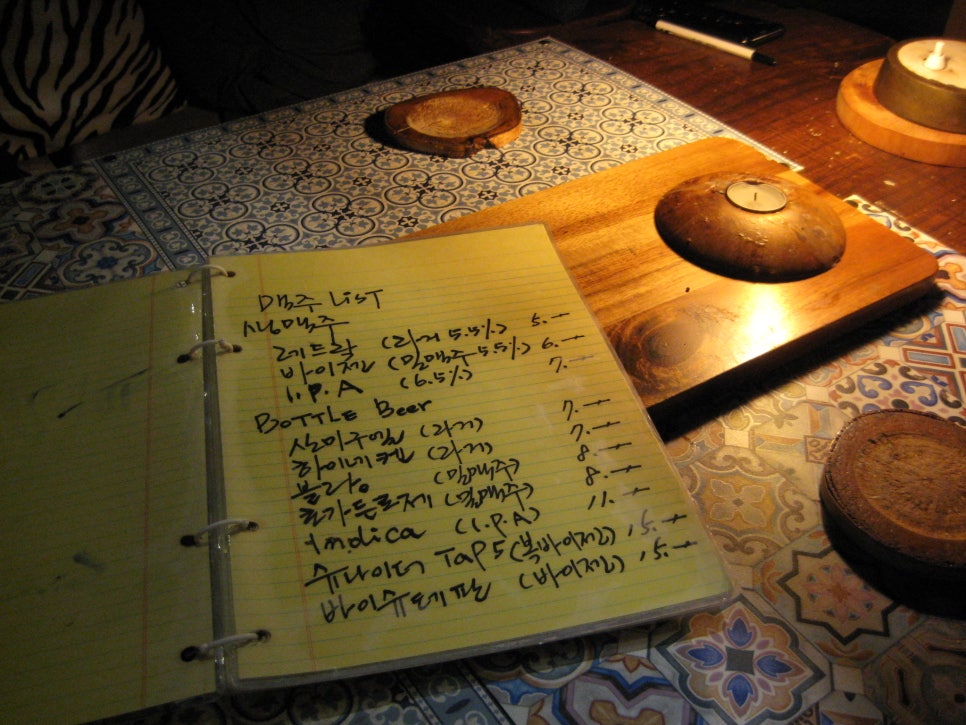 맥주 LIST
생맥주
레드락 (라거 5.5%) 5.-
바이젠 (밀맥주 5.5%) 6.-
I.P.A (6.5%) 7.-
BOTTLE Beer
산미구엘 (라거) 7.-
하이네켄 (라거) 7.-
블랑 (밀맥주) 8.-
호가든로제 (밀맥주) 8.-
Indica (I.P.A) 11.-
슈나이더 TAP5 (복바이젠) 15.-
바이슈테판 (바이젠) 15.-